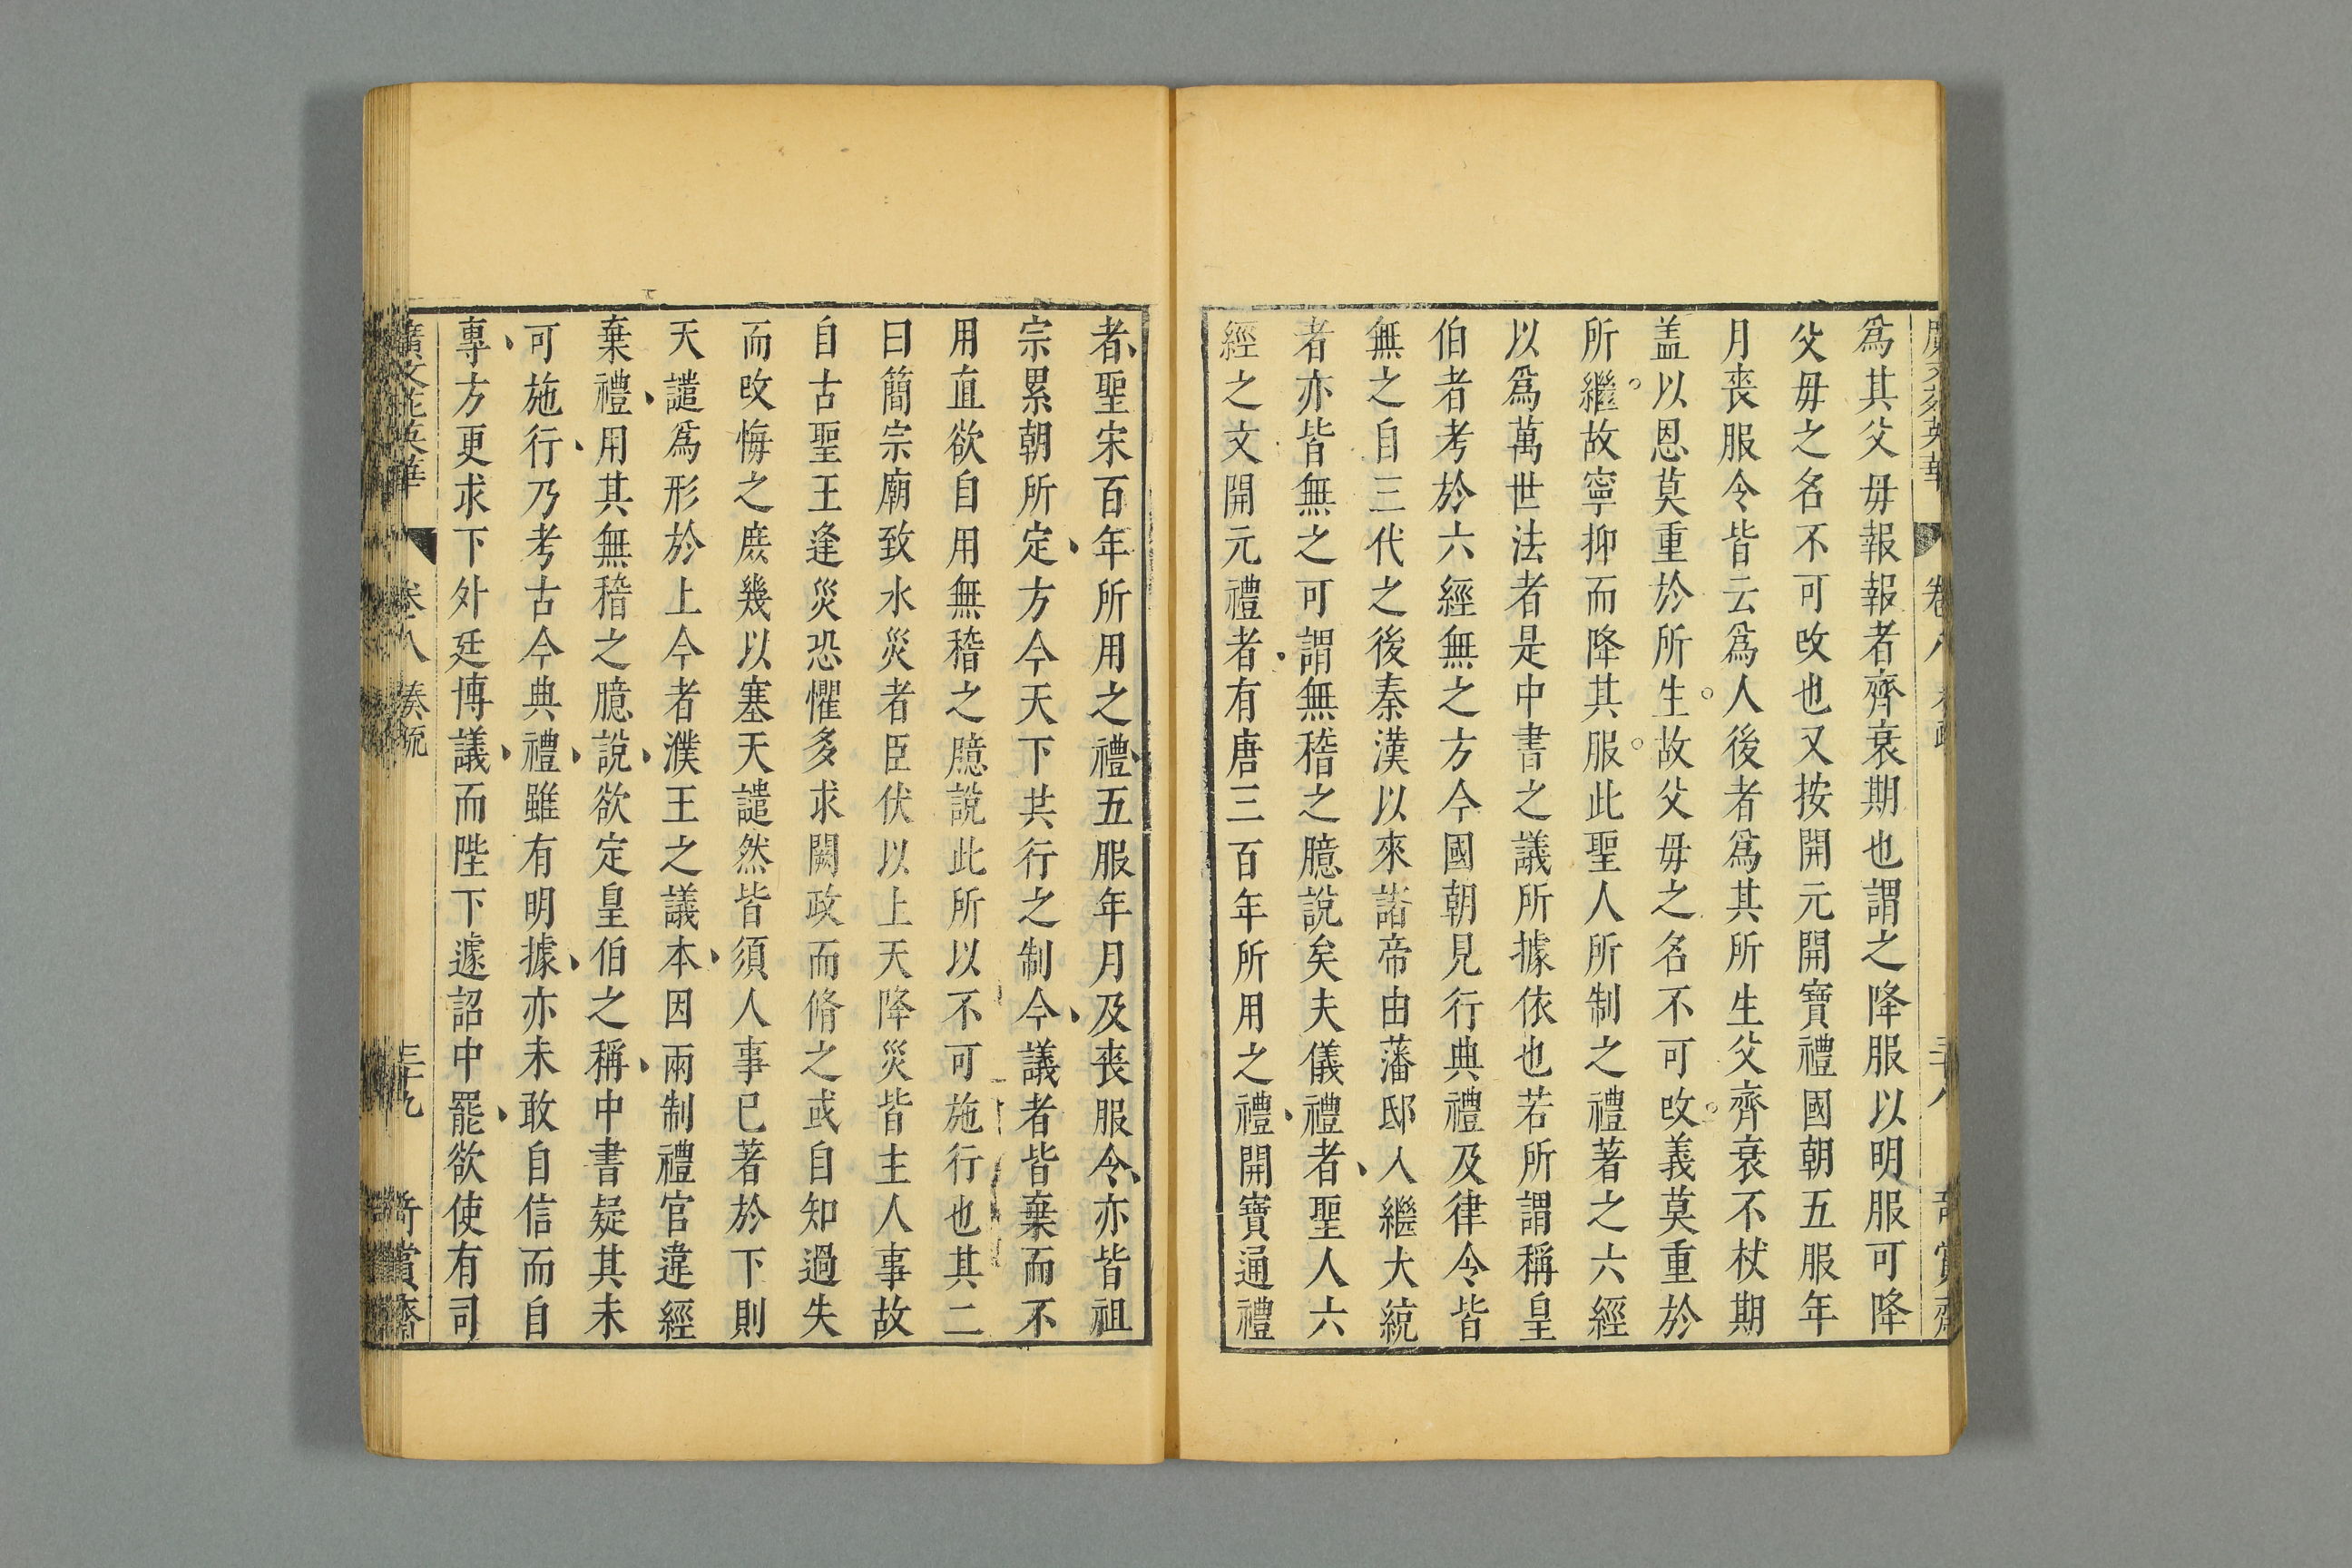 爲其父毋報報者齊衰期也謂之降服以明服可降
父毋之名不可攺也又按開元開寶禮國朝五服年
月丧服令皆云爲人後者爲其所生父齊衰不杖期
盖以恩莫重於所生故父毋之名不可攺義莫重於
所繼故寧抑而降其服此聖人所制之禮著之六經
以爲萬世法者是中書之議所據依也若所謂稱皇
伯者考於六經無之方今國朝見行典禮及律令皆
無之自三代之後秦漢以來諸帝由藩邸入繼大統
者亦皆無之可謂無稽之臆說矣夫儀禮者聖人六
經之文開元禮者有唐三百年所用之禮開寶通禮
者聖宋百年所用之禮五服年月及丧服令亦皆祖
宗累朝所定方今天下共行之制今議者皆棄而不
用直欲自用無稽之臆說此所以不可施行也其二
曰簡宗廟致水災者臣伏以上天降災皆主人事故
自古聖王逢災恐懼多求闕政而脩之或自知過失
而攺悔之庶幾以塞天譴然皆須人事已著於下則
天譴爲形於上今者濮王之議本因兩制禮官違經
棄禮用其無稽之臆說欲定皇伯之稱中書疑其未
可施行乃考古今典禮雖有明據亦未敢自信而自
專方更求下外廷博議而陛下遽詔中罷欲使有司
廣文苑英華 卷八 奏疏 三十九 奇賞齋